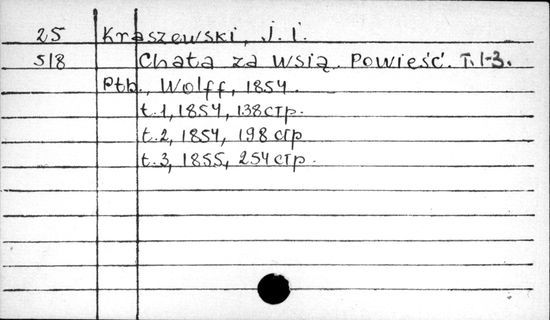 25 Kraszewski, J. I.
518 Chata za wsią. Powieść. T. 1-3.
Ptb., Wolff, 1854.
t. 1, 1854, 138 стр.
t. 2, 1854, 198 стр
t. 3, 1855, 254 стр.